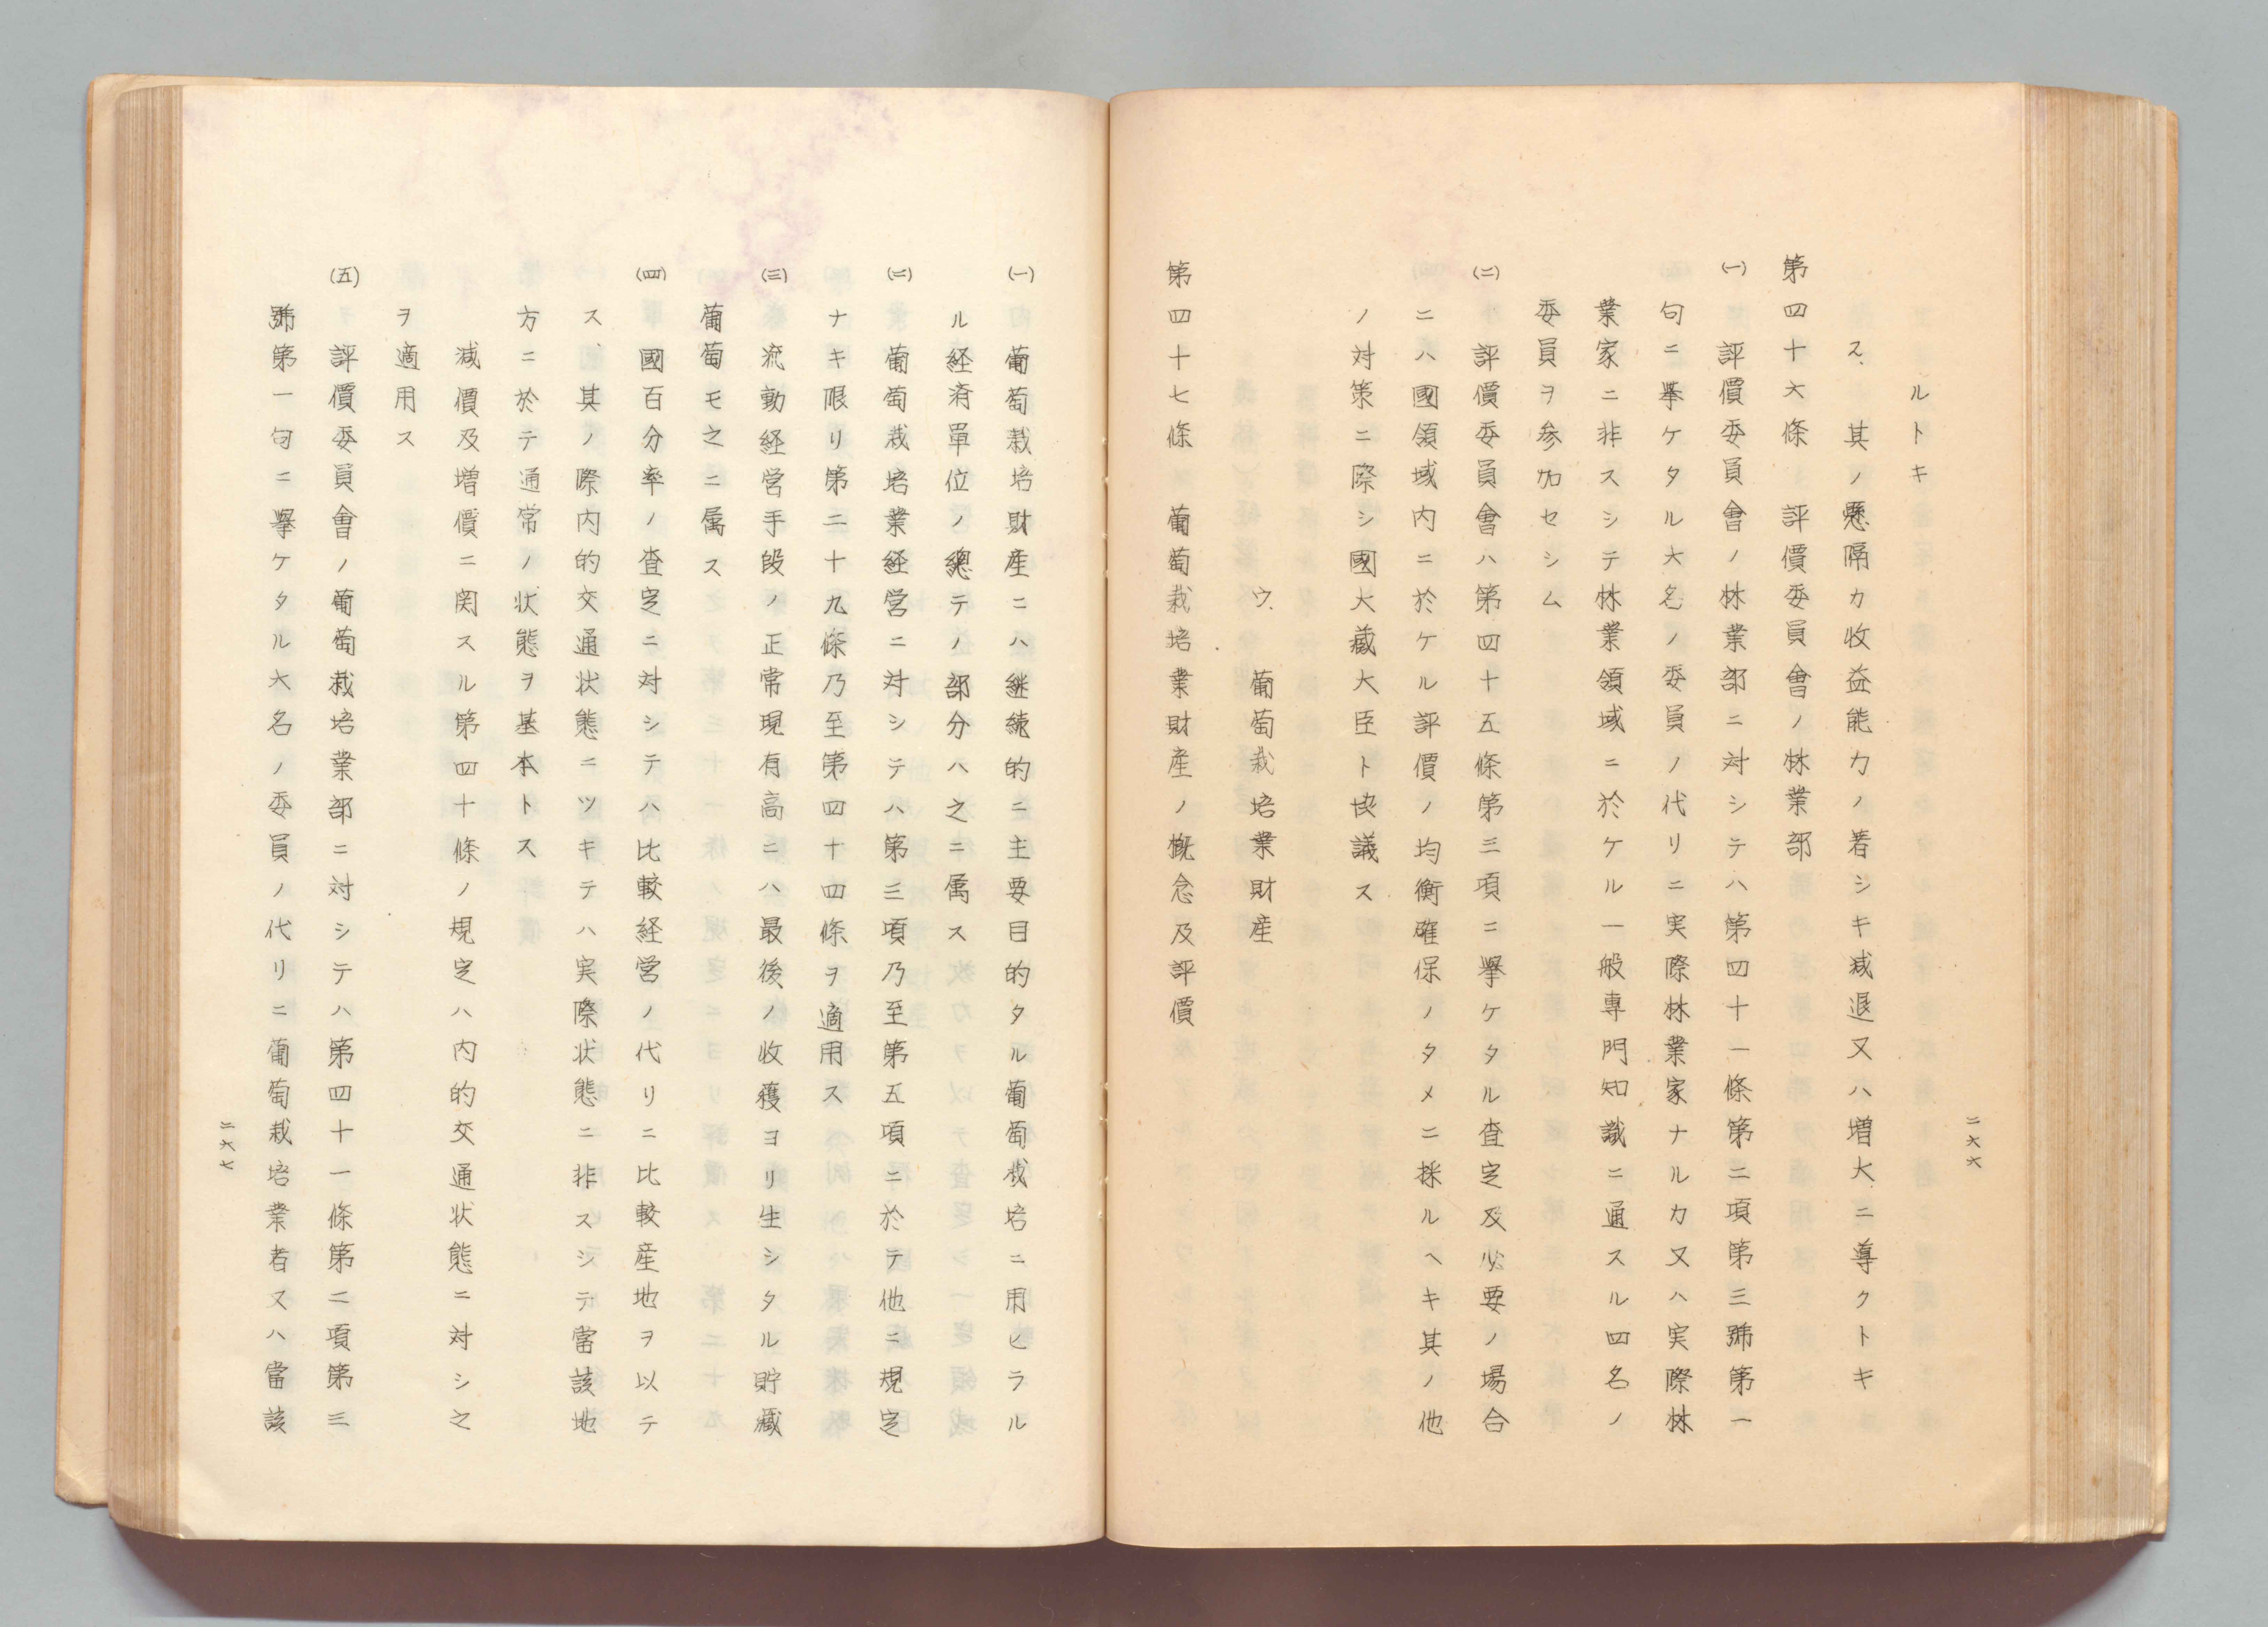 二六六
ルトキ
ス、其ノ懸隔カ收益能力ノ著シキ減退又ハ増大ニ導クトキ
第四十六條 評價委員會ノ林業部
(一) 評價委員會ノ林業部ニ対シテハ第四十一條第二項第三號第一
句ニ挙ケタル大名ノ委員ノ代リニ実際林業家ナルカ又ハ実際林
業家ニ非スシテ林業領域ニ於ケル一般専門知識ニ通スル四名ノ
委員ヲ参加セシム
(二) 評價委員會ハ第四十五條第三項ニ擧ケタル査定及必要ノ場合
ニハ國領域内ニ於ケル評價ノ均衡確保ノタメニ採ルヘキ其ノ他
ノ対策ニ際シ國大藏大臣ト协議ス
ウ、葡萄栽培業財産
第四十七條 葡萄栽培業財産ノ概念及評價
(一) 葡萄栽培財産ニハ継続的ニ主要目的タル葡萄栽培ニ用ヒラル
ル経済單位ノ總テノ部分ハ之ニ属ス
(二) 葡萄栽培業経営ニ対シテハ第三項乃至第五項ニ於テ他ニ規定
ナキ限リ第二十九條乃至第四十四條ヲ適用ス
(三) 流動経営手段ノ正常現有高ニハ最後ノ收穫ヨリ生シタル貯藏
葡萄モ之ニ属ス
(四) 國百分率ノ査定ニ対シテハ比較経営ノ代リニ比較産地ヲ以テ
ス、其ノ際内的交通状態ニツキテハ実際状態ニ非スシテ當該地
方ニ於テ通常ノ状態ヲ基本トス
減價及増價ニ関スル第四十條ノ規定ハ内的交通状態ニ対シ之
ヲ適用ス
(五) 評價委員會ノ葡萄栽培業部ニ対シテハ第四十一條第二項第三
號第一句ニ擧ケタル大名ノ委員ノ代リニ葡萄栽培業者又ハ當該
二六七